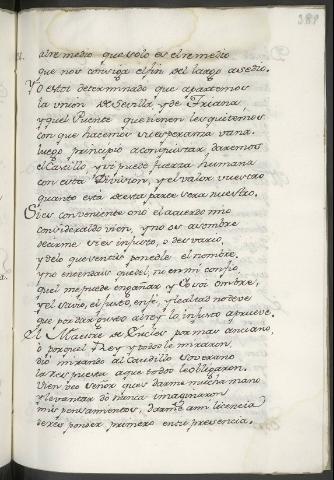 388
al remedio que solo es el remedio
que nos consiga el fin del largo asedio.
Yo estoi determinado que apartemos
la union de Sevilla, y de Triana,
y aquel Puente que tienen les quitemos
con que hacemos su esperanza vana.
luego principio a conquistar daremos
el Castillo, y si puede fuerza humana
con esta Division, y el valor vuestro
quanto està de esta parte sera nuestro.
Si es conveniente o no el acuerdo mio
consideraldo vien, y no os asombre
decirme si es injusto, o desvario,
y de lo que sentis ponedle el nombre,
y no entendais que de mi en mi confio
que me puede engañar y Yo soi ombre,
y el savio, el justo, en fe, y lealtad no deve
que por dar gusto al rey lo injusto aprueve.
El Maestre de Uncles por mas anciano,
o porque el Rey y todos le miraron,
diò mirando al Caudillo soverano
la respuesta a que todos le obligaron.
Vien veo Señor que es darme mucha mano
y levantar dò nunca imaginaron
mis pensamientos, darme a mi licencia
de responder primero en tu presencia.